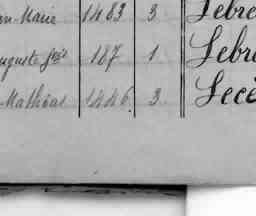 n-Marie 1483 3 Lebre
uguste fçois 187 1 Lebre
Mathieu 1446 3 Lecè